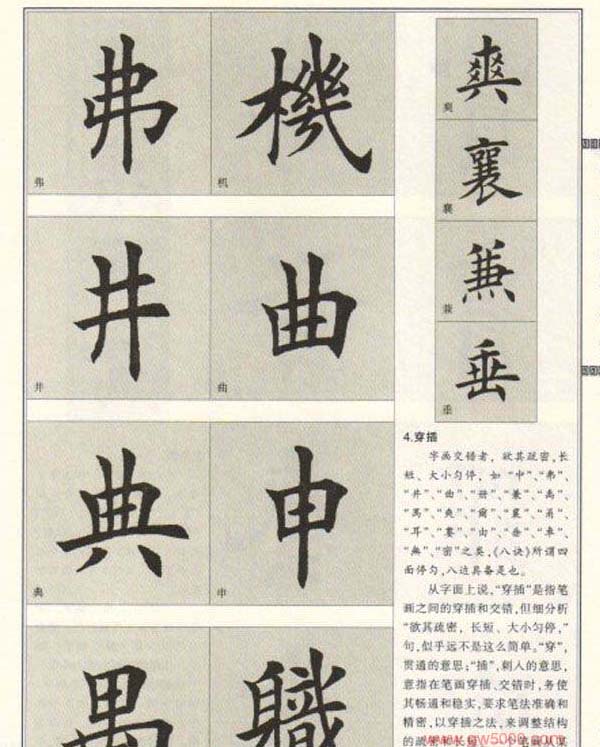 弗
機
弗
机
井
曲
井
曲
典
申
典
申
禺
職
爽
爽
襄
襄
兼
兼
垂
垂
4.穿插
字画交错者，欲其疏密,长
短、大小匀停，如“中”、“弗”、
“井”、“曲”、“册”、“兼”、“禹”、
“禺”、“爽”、“爾”、“襄”、“甬”、
“耳”、“婁”、“由”、“垂”、“車”、
“無”、“密”之类,《八诀》所谓四
面停匀,八边具备是也。
从字面上说,“穿插”是指笔
画之间的穿插和交错,但细分析
“欲其疏密，长短、大小匀停,”
句,似乎远不是这么简单。“穿”,
贯通的意思;“插”,刺入的意思,
意指在笔画穿插、交错时,务使
其畅通和稳实,要求笔法准确和
精密,以穿插之法,来调整结构